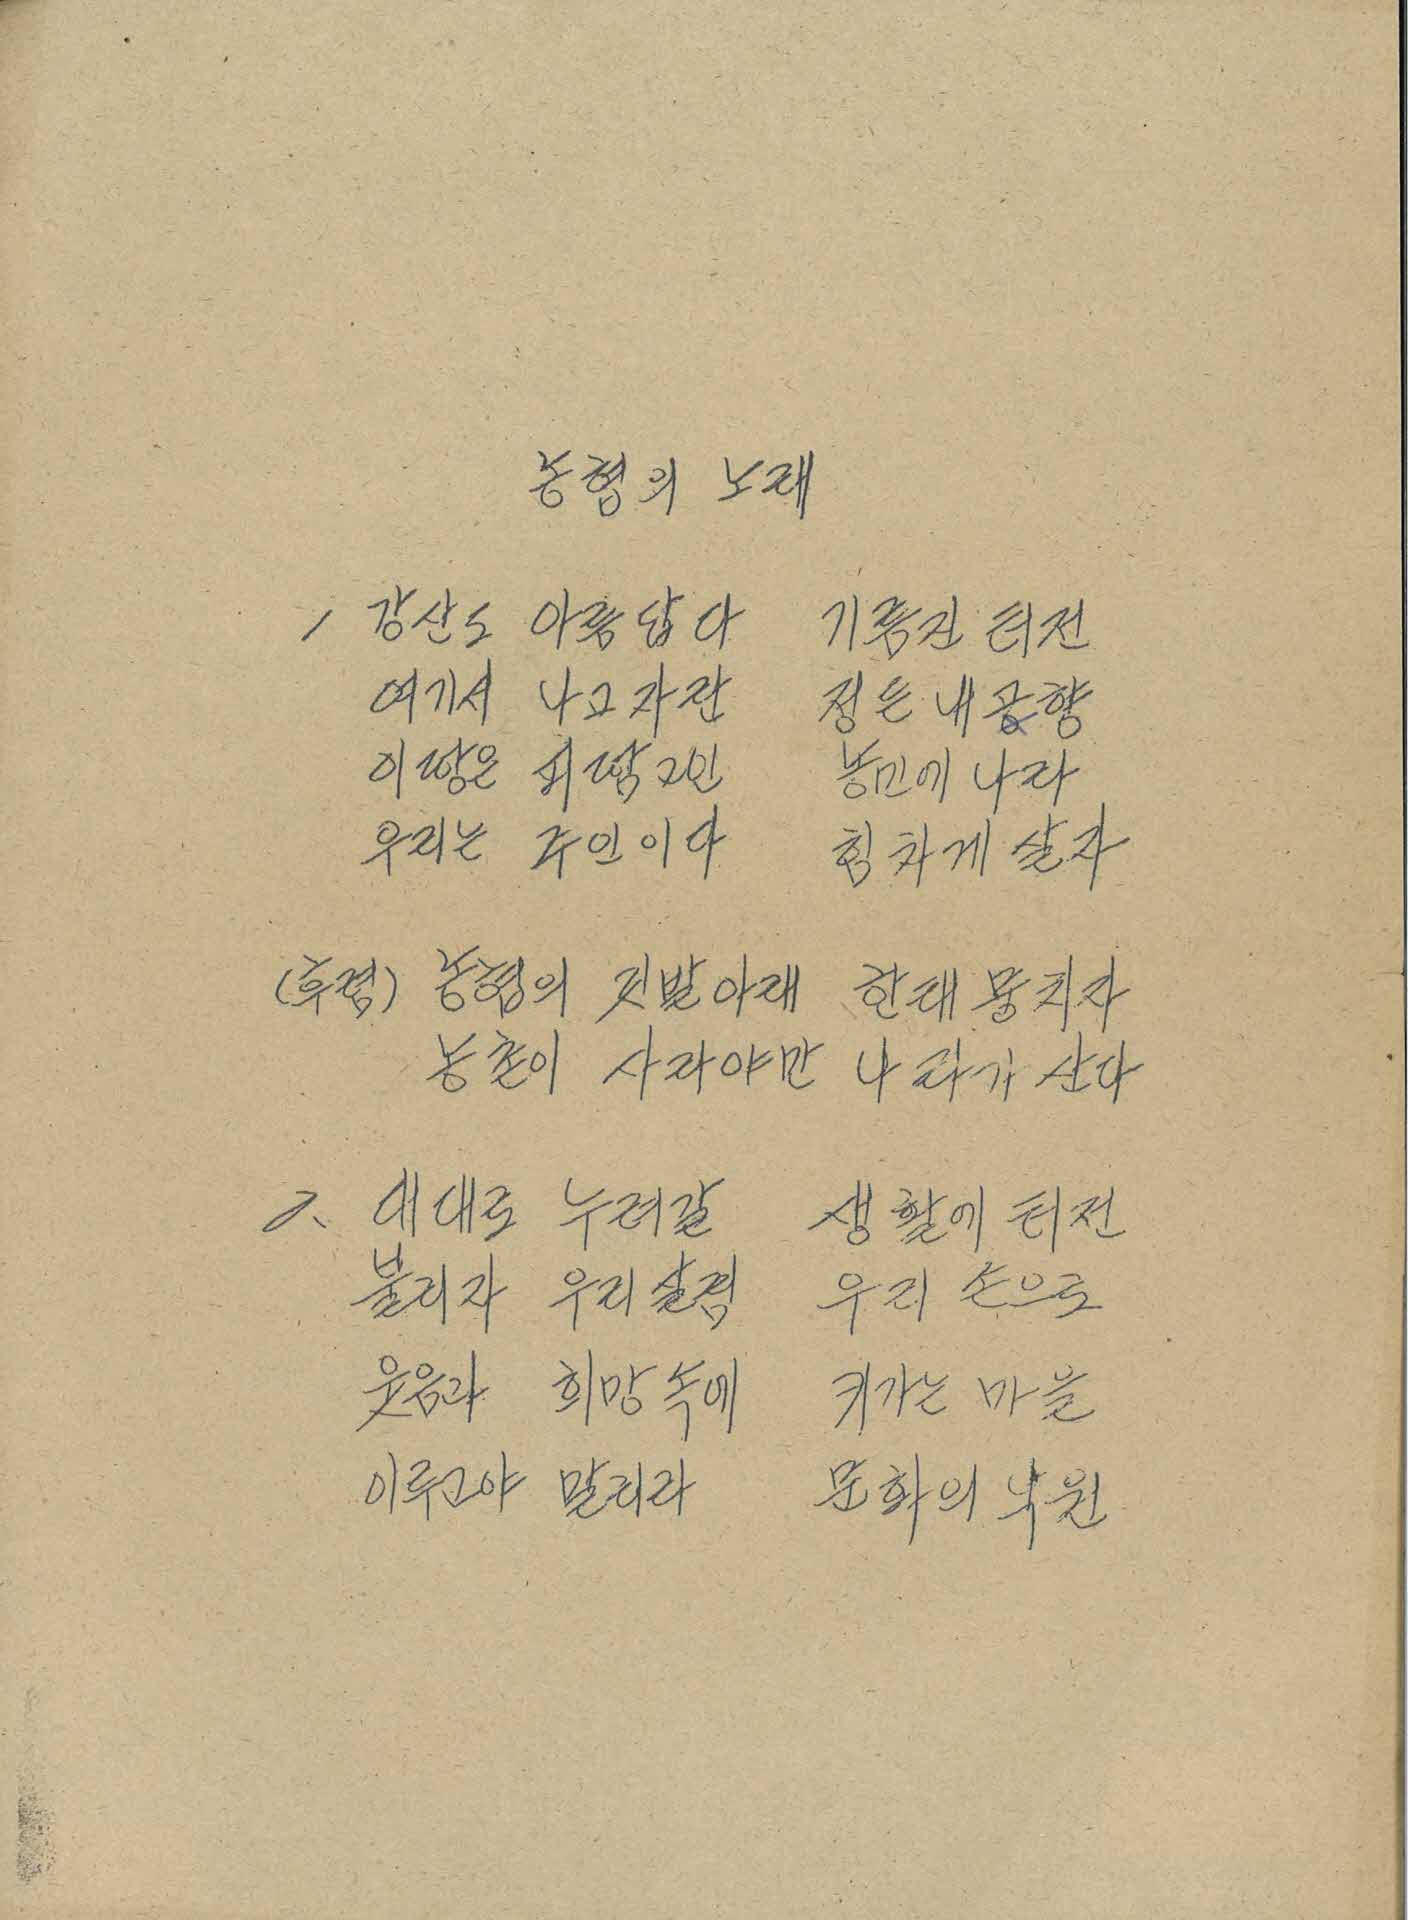 농협의 노래
1 강산도 아름답다 기름진 터전
여기서 나고자란 정든 내 고향
이땅은 피땀고인 농민에 나라
우리는 주인이다 힘차게 살자
(후렴) 농협의 짓발아래 한태 뭉치자
농촌이 사라야만 나라가 산다
2. 대대로 누려갈 생활에 터전
불리자 우리살림 우리 손으로
웃음과 희망속에 커가는 마을
이루고야 말리라 문화의 낙원